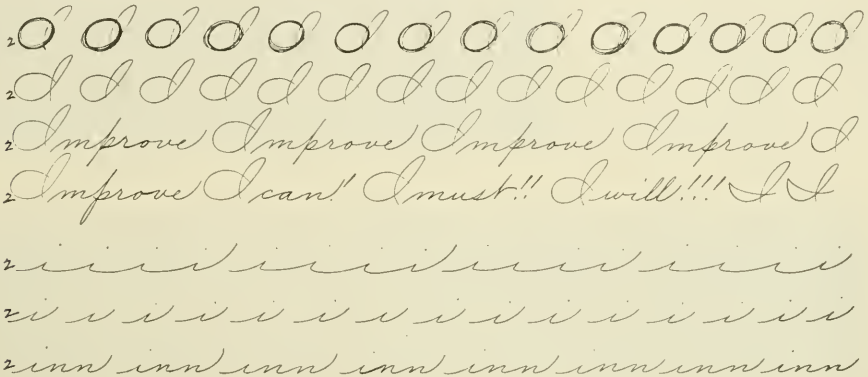 2 I I I I I I I I I I I I I I
2 I I I I I I I I I I I I I I
2 Improve Improve Improve Improve I
2 Improve I can! I must!! I will!!! I I
2 iiii iiii iiii iiii
2 i i i i i i i i i i i i i i i
2 inn inn inn inn inn inn inn inn